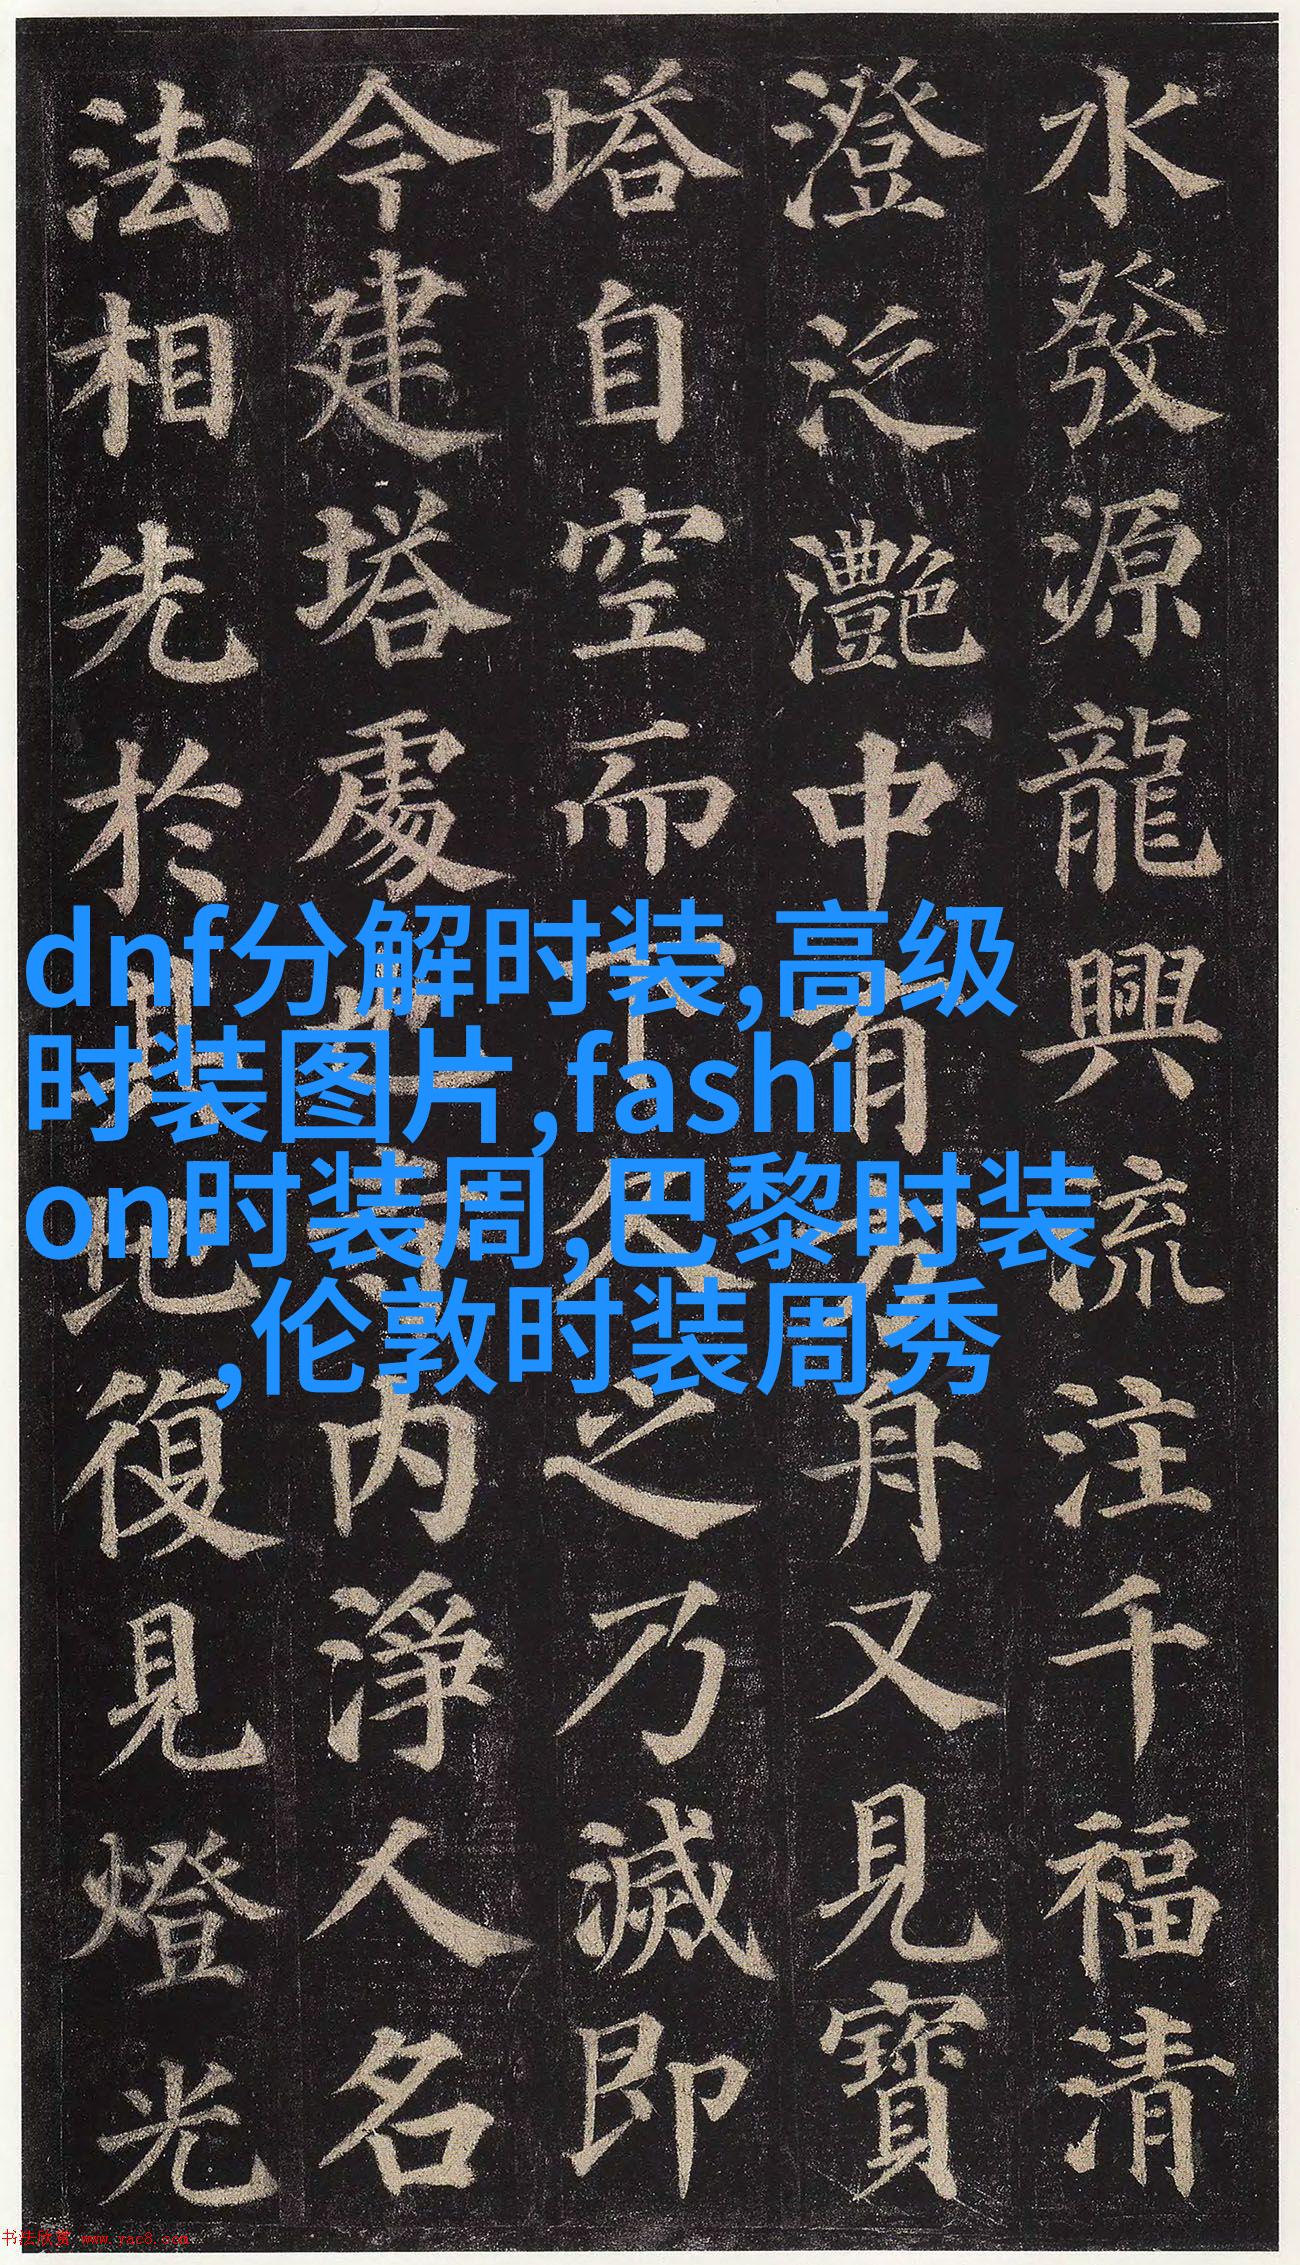 水發源龍興流注千福清
澄泛灧中有方舟又見寶
塔自空而下久之乃滅即
今建塔處也寺内淨人名
法相先於其地復見燈光
dnf分解时装,高级
时装图片,fashi
on时装周,巴黎时装
,伦敦时装周秀
书法欣赏 www.yac8.com